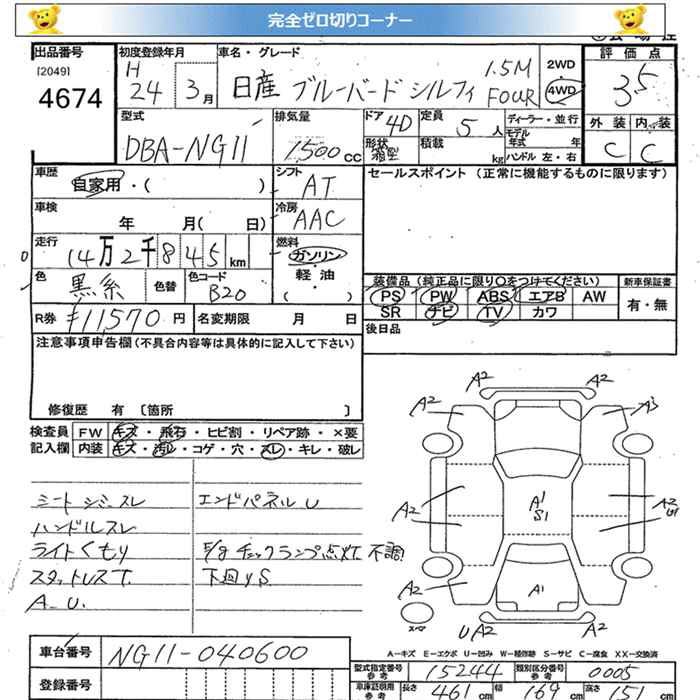 完全ゼロ切りコーナー
出品番号
[2049]
4674
初度登録年月
H
24 3月
車名・グレード
日産 ブルーバード シルフィ
1.5M
FOUR
2WD
4WD
評価点
3.5
外装 内装
C C
型式
DBA-NG11
排気量
1,500cc
ドア 4D
形状 箱型
定員 5人
積載 kg
ディーラー・並行
モデル
年式 年
ハンドル 左・右
車歴
自家用・( )
シフト
AT
セールスポイント (正常に機能するものに限ります)
車検
年 月( 日)
冷房
AAC
走行
14万2千845km
燃料
ガソリン
軽・油
( )
色
黒系
色替
色コード
B20
装備品 (純正品に限り〇をつけてください)
新車保証書
PS PW ABS エアB AW
有・無
SR ナビ TV カワ
R券 ¥11570円
名変期限 月 日
後日品
注意事項申告欄 (不具合内容等は具体的に記入して下さい)
修復歴 有 〔箇所 〕
検査員
記入欄
FW キズ・飛石・ヒビ割・リペア跡・×要
内装 キズ・汚レ・コゲ・穴・スレ・キレ・破レ
シートシミ、スレ
ハンドルスレ
ライトくもり
スタットレスT.
A.U.
エンドパネルU
E/gチェックランプ点灯 不調
下回りS
A2 A2
A2 A3
A2 A1 S1 A2 U1
A2
A2 A1 A2
スペア
UA2 A2
A-キズ E-エクボ U-凹み W-補修跡 S-サビ C-腐食 XX-交換済
車台番号 NG11-040600
登録番号
型式指定番号
参考
15244
類別区分番号
参考
0005
車庫証明用
参考
長さ 461cm 幅 169cm 高さ 151cm